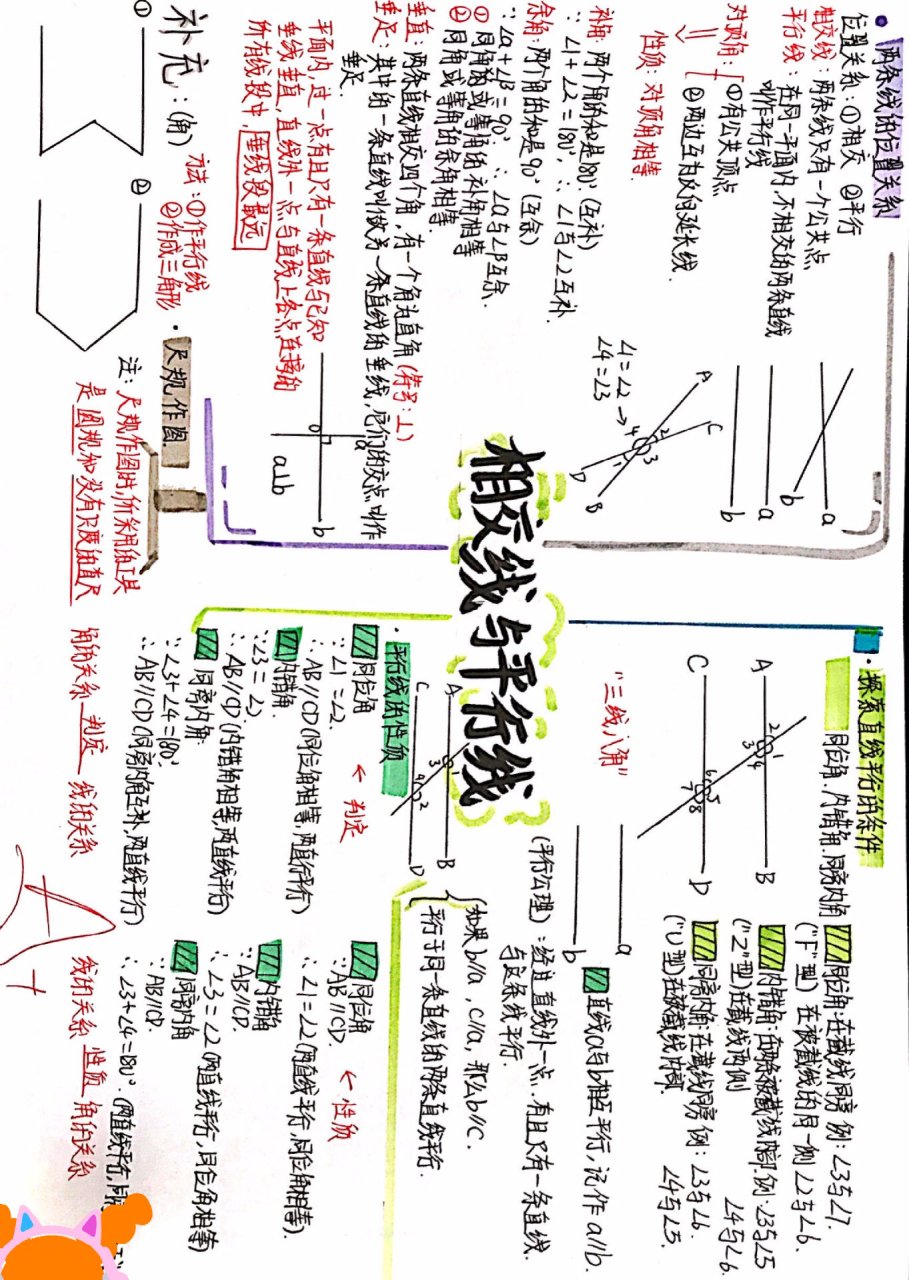 相交线与平行线
两条线的位置关系
位置关系：①相交 ②平行
相交线：两条线只有一个公共点
平行线：在同一平面内，不相交的两条直线
叫作平行线
对顶角：①有公共顶点
②两边互为反向延长线.
性质：对顶角相等.
a
b
a
b
A
C
D
B
1
2
3
4
∠1=∠2
∠4=∠3
补角：两个角的和是180°(互补)
∵∠1+∠2=180°，∴∠1与∠2互补.
余角：两个角的和是90°(互余)
∵∠α+∠β=90°，∴∠α与∠β互余.
①同角或等角的补角相等
②同角或等角的余角相等.
垂直：两条直线相交四个角，有一个角为直角(符号：⊥)
垂足：其中的一条直线叫做另一条直线的垂线，它们的交点叫作
垂足.
平面内，过一点有且只有一条直线与已知
直线垂直，直线外一点与直线上各点连接的
所有线段中，垂线段最短
O
a
b
a⊥b
补充：(角)
方法：①作平行线
②作成三角形
①
②
·尺规作图.
注：尺规作图时，所采用的工具
是圆规和没有尺度的直尺
·探索直线平行的条件
同位角，内错角，同旁内角
A
B
C
D
1
2
3
4
5
6
7
8
"三线八角"
同位角：在截线同旁 例：∠3与∠7.
("F"型) 在被截线的同一侧 ∠2与∠6.
内错角：在两条被截线内部 例：∠3与∠5
("Z"型)在截线两侧 ∠4与∠6.
同旁内角：在截线同旁 例：∠3与∠6.
("U"型)在被截线内部. ∠4与∠5.
a
b
直线a与b相互平行，记作 a∥b.
(平行公理)：经过直线外一点，有且只有一条直线
与这条线平行.
如果b∥a，c∥a，那么b∥c.
平行于同一条直线的两条直线平行.
·平行线的性质
A
B
C
D
1
2
3
4
← 判定
同位角
∵∠1=∠2.
∴AB∥CD(同位角相等，两直行平行)
内错角.
∵∠3=∠2
∴AB∥CD(内错角相等，两直线平行)
同旁内角.
∵∠3+∠4=180°
∴AB∥CD(同旁内角互补，两直线平行)
角的关系 判定 线的关系
← 性质
同位角
∵AB∥CD.
∴∠1=∠2(两直线平行，同位角相等).
内错角
∵AB∥CD.
∴∠3=∠2(两直线平行，同位角相等)
同旁内角
∵AB∥CD.
∴∠3+∠4=180°.(两直线平行，同
线的关系 性质 角的关系
A+